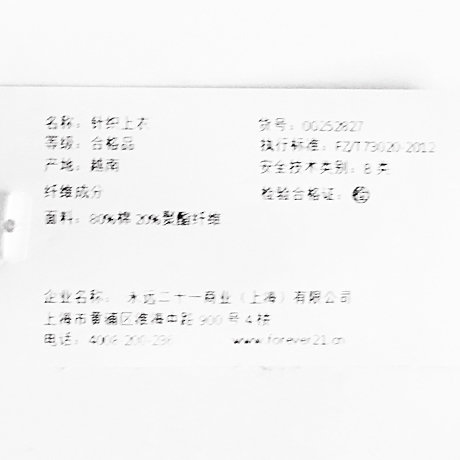 名称：针织上衣 货号：00252827
等级：合格品 执行标准：FZ/T 73020-2012
产地：越南 安全技术类别：B 类
纤维成分 检验合格证：
面料：80%棉 20%聚酯纤维
企业名称： 永远二十一商业（上海）有限公司
上海市黄浦区淮海中路 900 号 4 楼
电话：4008-200-236 www.forever21.cn